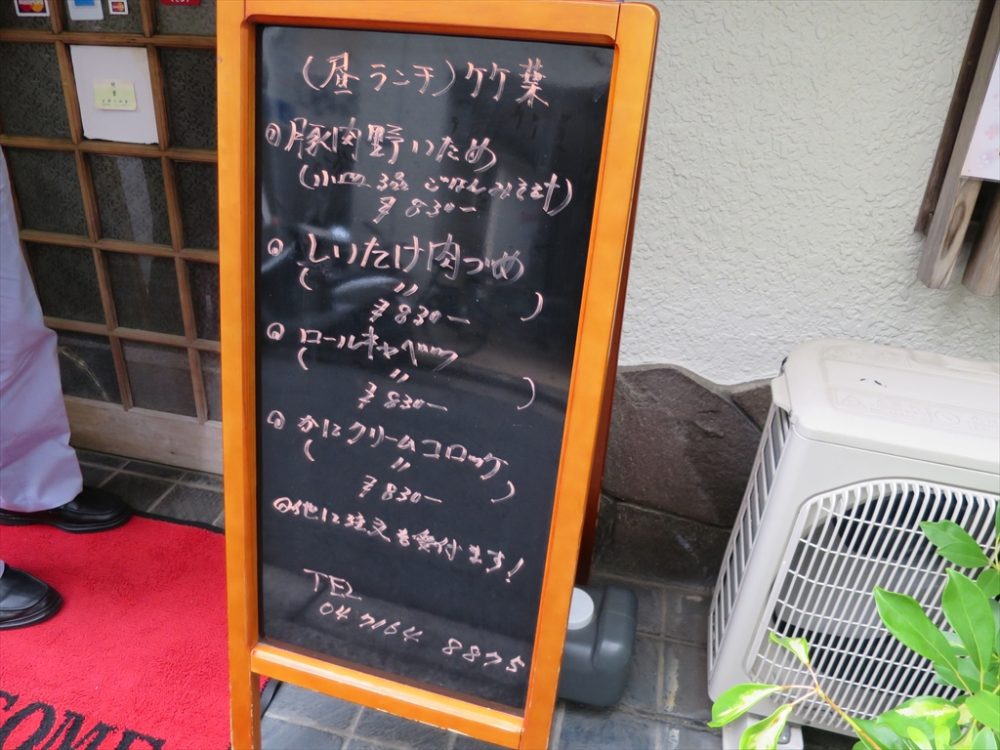 (昼ランチ)竹葉
豚肉野いため
(小皿3品 ごはんみそ汁)
¥830-
しいたけ肉づめ
( 〃 )
¥830-
ロールキャベツ
( 〃 )
¥830-
かにクリームコロッケ
( 〃 )
¥830-
他に注文も受付ます!
TEL
04 7164 8875
COME